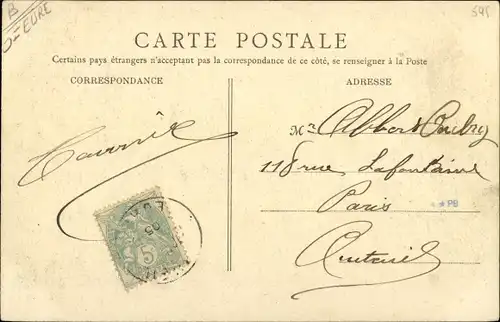 B
D-EURE
CARTE POSTALE
Certains pays étrangers n'acceptant pas la correspondance de ce côté, se renseigner à la Poste
CORRESPONDANCE
ADRESSE
Mr Albert
118 rue Lafontaine
Paris
Auteuil
PB
5